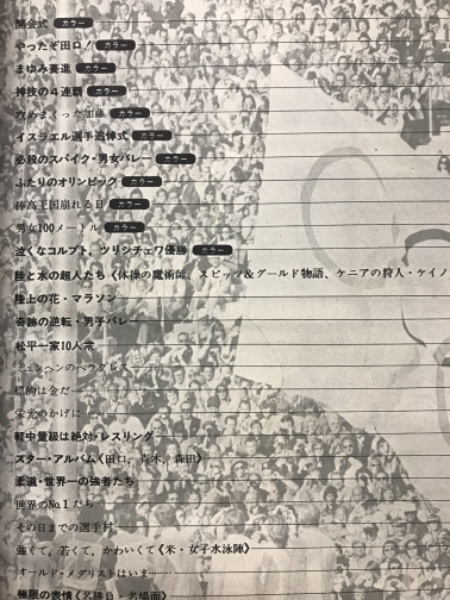 開会式 カラー
やったぞ田口! カラー
まゆみ驀進 カラー
神技の4連覇 カラー
攻めまくった加藤 カラー
イスラエル選手追悼式 カラー
必殺のスパイク・男女バレー カラー
ふたりのオリンピック カラー
棒高王国崩れる日 カラー
男女100メートル カラー
泣くなコルブト,ツリシチェワ優勝 カラー
陸と水の超人たち《体操の魔術師、スピッツ&グールド物語、ケニアの狩人・ケイノ
陸上の花・マラソン
奇跡の逆転・男子バレー
松平一家10人衆
ミュンヘンのヘラクレス
標的は金だ
栄光のかげに……
軽中量級は絶対・レスリング
スター・アルバム《田口,青木,森田》
柔道・世界一の強者たち
世界のNo.1たち
その日までの選手村
強くて,若くて,かわいくて《米・女子水泳陣》
オールド・メダリストはいま………
極限の表情《名勝負・名場面》